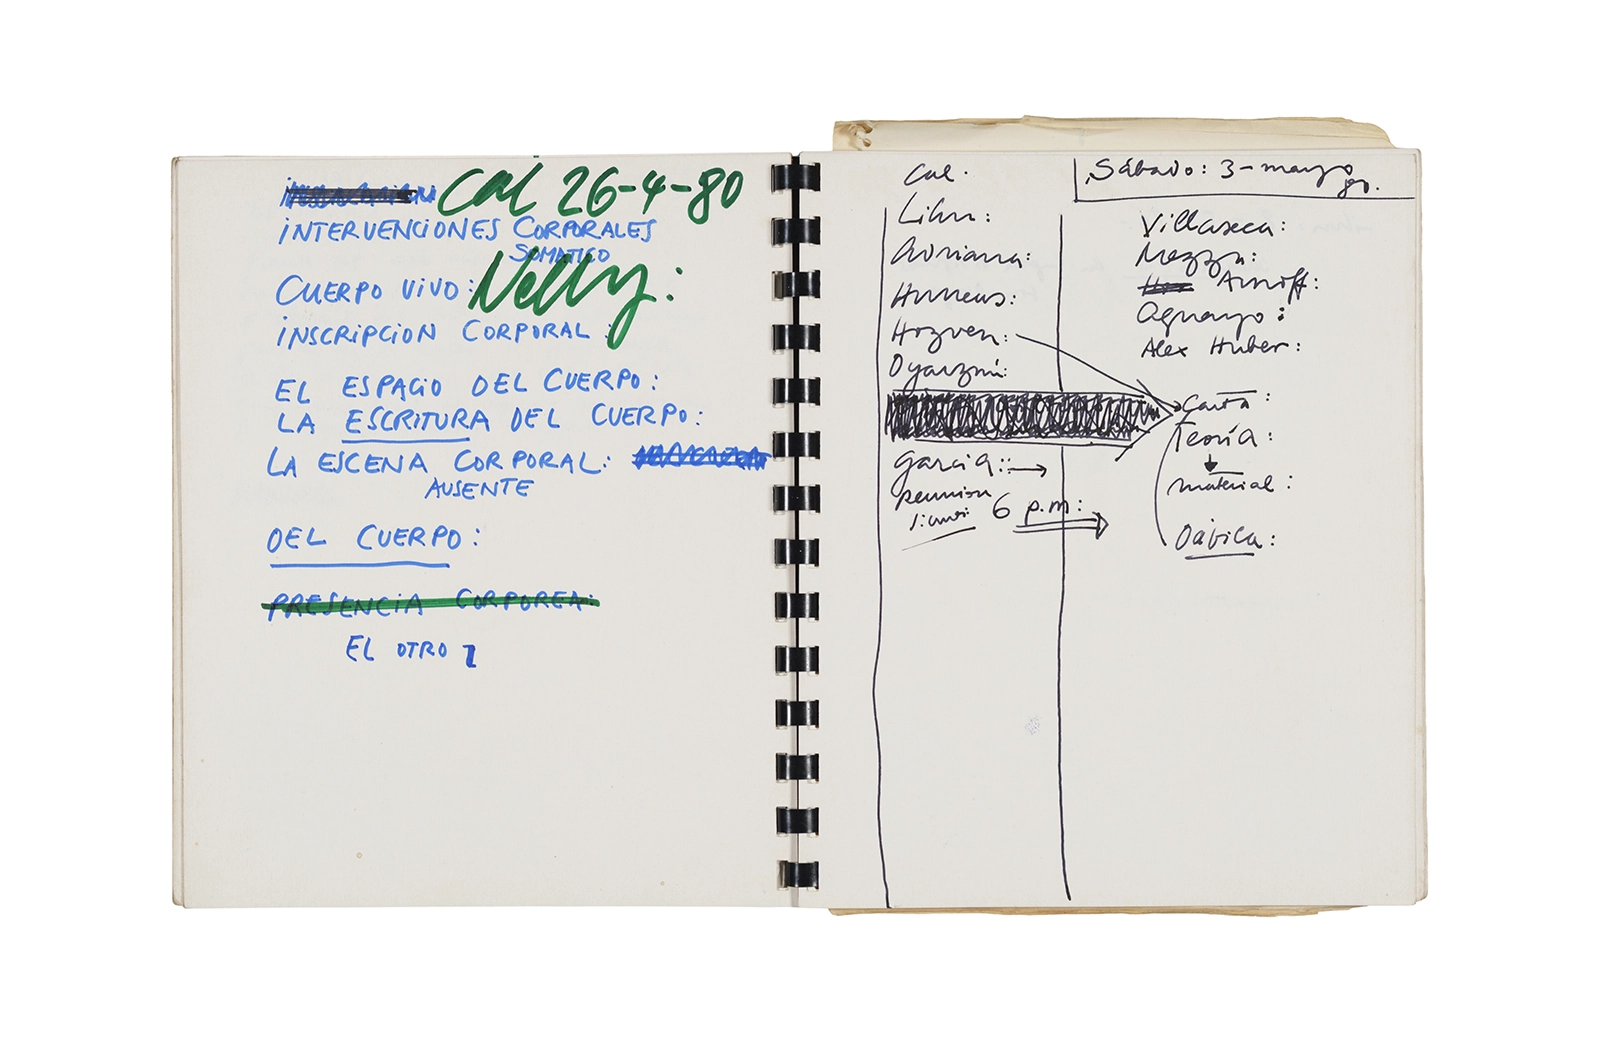 Cal 26-4-80
INTERVENCIONES CORPORALES
SOMATICO
CUERPO VIVO: Nelly:
INSCRIPCION CORPORAL:
EL ESPACIO DEL CUERPO:
LA ESCRITURA DEL CUERPO:
LA ESCENA CORPORAL:
AUSENTE
DEL CUERPO:
PRESENCIA CORPOREA:
EL OTRO
Cal.
Sábado: 3-mayo 80.
Lihn:
Adriana:
Huneeus:
Hozven:
Oyarzún:
Garcia:
reunion
6 p.m:
Villaseca:
Mezza:
Aguayo:
Alex Huber:
Carta:
Teoría:
material:
Dávila: